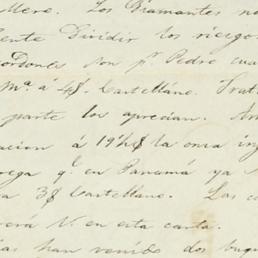 Mere. Los Diamantes no
ente Dividir los riesgos.
Cordones son pr. Pedro cua
Ma. á 4$ Castellano. Trat
parte los aprecian.
acion á 19½$ la onza ing
ega qe. en Panamá ya
a 3$ Castellano. Las ca
verá V. en esta carta.
ias han venido dos buqu